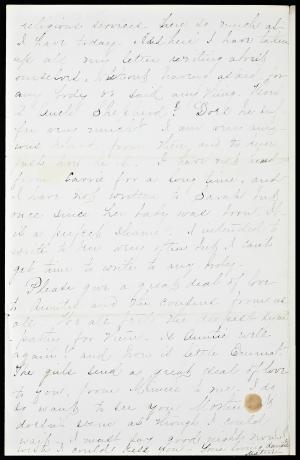 religious services here so much as
I have today. And here I have taken
up all my letter writing about
ourselves, without having asked for
any body or said any thing. How
is Uncle
I am very anx-
ious to hear from him and to
how he is. I have not heard
from Carrie for a long time, and
I have not written to Sarah but
once since her baby was born. It
is a perfect shame. I intended to
write to her very often but I can't
get time to write to any body.
Please give a great deal of love
to Auntie and the cousins from us
all. We all feel the deepest sym-
pathy for them. Is Auntie well
again? and how is little Emma?
The girls send a great deal of love
to you, from Minnie to me. I do
so want to see you Mother. It
doesn't seem as though I could
wait. I must say good night now. I
wish I could kiss you. Your loving daughter